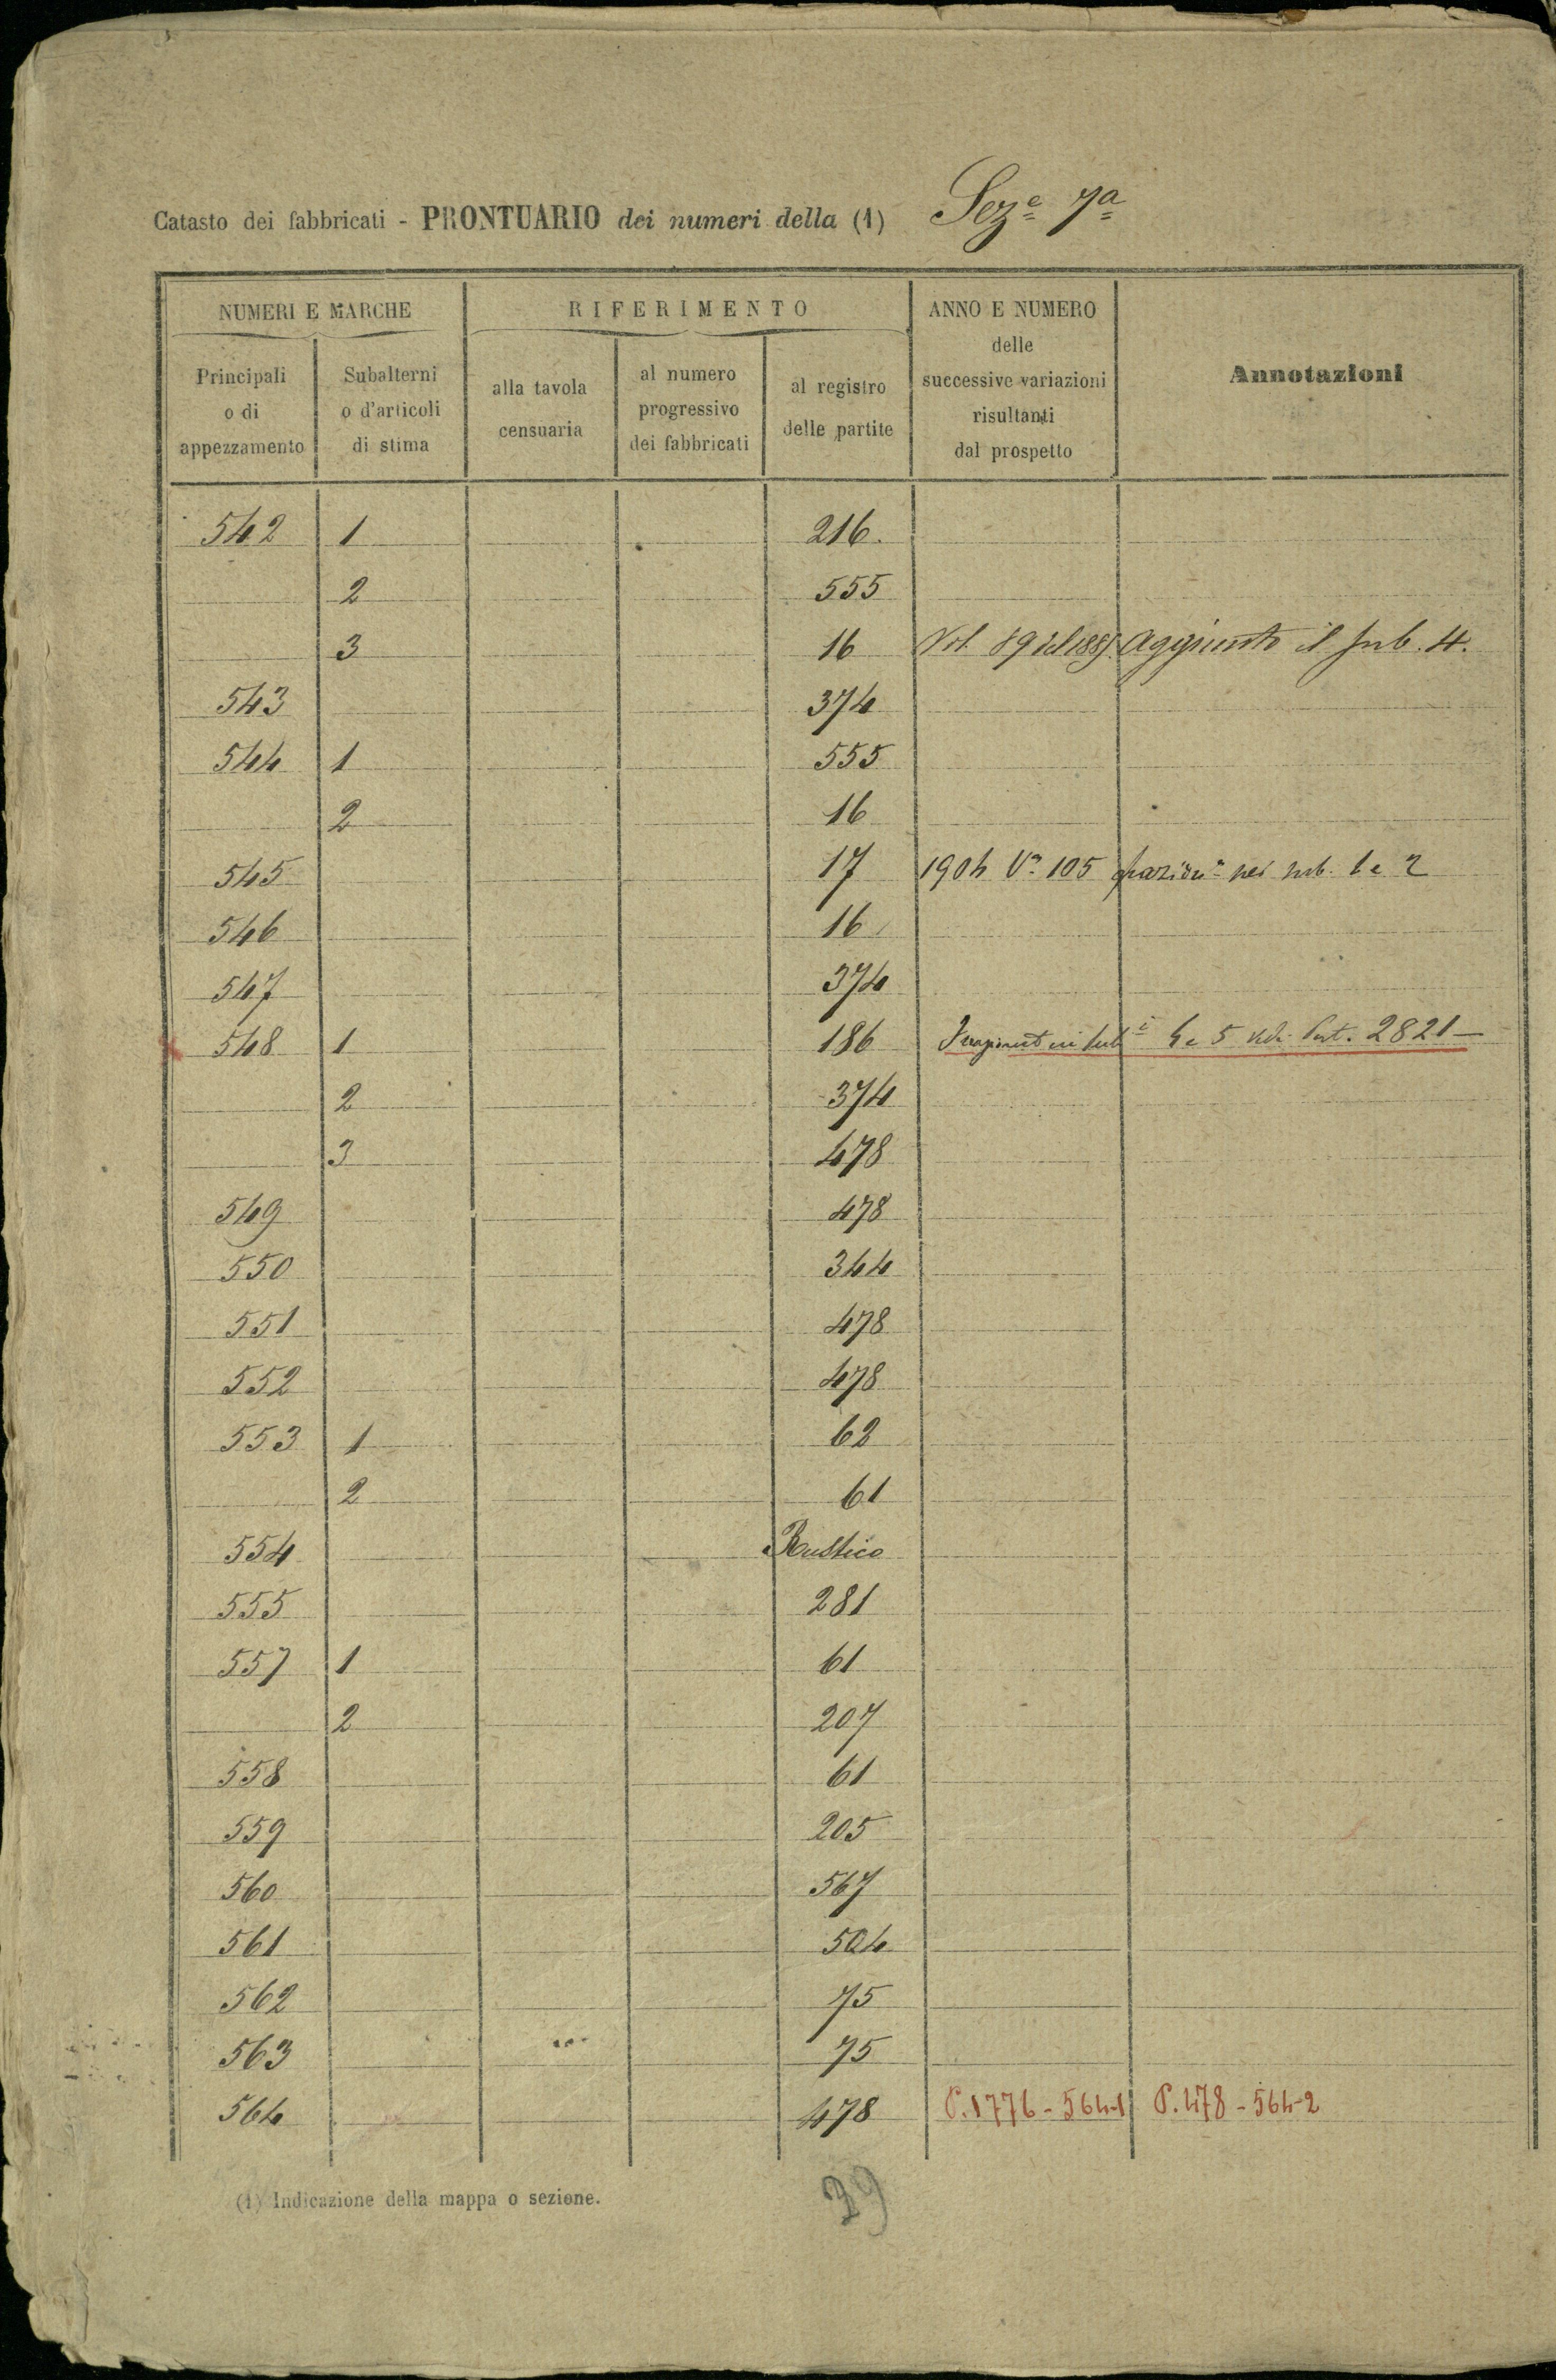 Catasto dei fabbricati - PRONTUARIO dei numeri della (1) Sez.e 7a
NUMERI E MARCHE
RIFERIMENTO
ANNO E NUMERO
delle
successive variazioni
risultanti
dal prospetto
Annotazioni
Principali
o di
appezzamento
Subalterni
o d'articoli
di stima
alla tavola
censuaria
al numero
progressivo
dei fabbricati
al registro
delle partite
542 1 216.
2 555
3 16 89 Aggiunto il sub. 4.
543 374
544 1 555
2 16
545 17 1904 105 sub. 1 e 2
546 16
547 374
548 1 186 e 5 2821
2 374
3 478
549 478
550 344
551 478
552 478
553 1 62
2 61
554 Rustico
555 281
557 1 61
2 207
558 61
559 205
560 567
561 504
562 75
563 75
564 478 P. 1776 - 564-1 P. 478 - 564-2
(1) Indicazione della mappa o sezione.
39